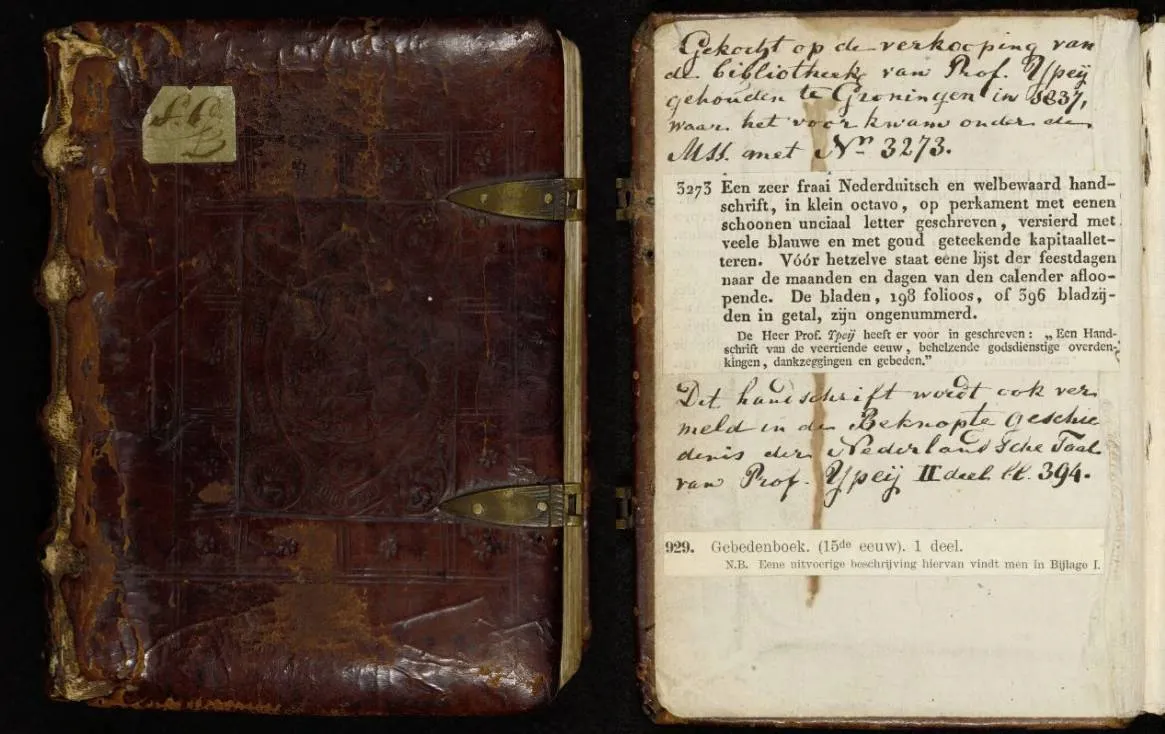 Gekocht op de verkooping van
de bibliotheek van Prof. Ypeij
gehouden te Groningen in 1837,
waar het voor kwam onder de
MSS. met Nr. 3273.
3273 Een zeer fraai Nederduitsch en welbewaard hand-
schrift, in klein octavo, op perkament met eenen
schoonen unciaal letter geschreven, versierd met
veele blauwe en met goud geteekende kapitaallet-
teren. Vóór hetzelve staat eene lijst der feestdagen
naar de maanden en dagen van den calender afloo-
pende. De bladen, 198 folioos, of 396 bladzij-
den in getal, zijn ongenummerd.
De Heer Prof. Ypeij heeft er voor in geschreven: „Een Hand-
schrift van de veertiende eeuw, behelzende godsdienstige overden-
kingen, dankzeggingen en gebeden.”
Dit handschrift wordt ook ver
meld in de Beknopte Geschie
denis der Nederlandsche Taal
van Prof. Ypeij II deel bl. 394.
929. Gebedenboek. (15de eeuw). 1 deel.
N.B. Eene uitvoerige beschrijving hiervan vindt men in Bijlage I.